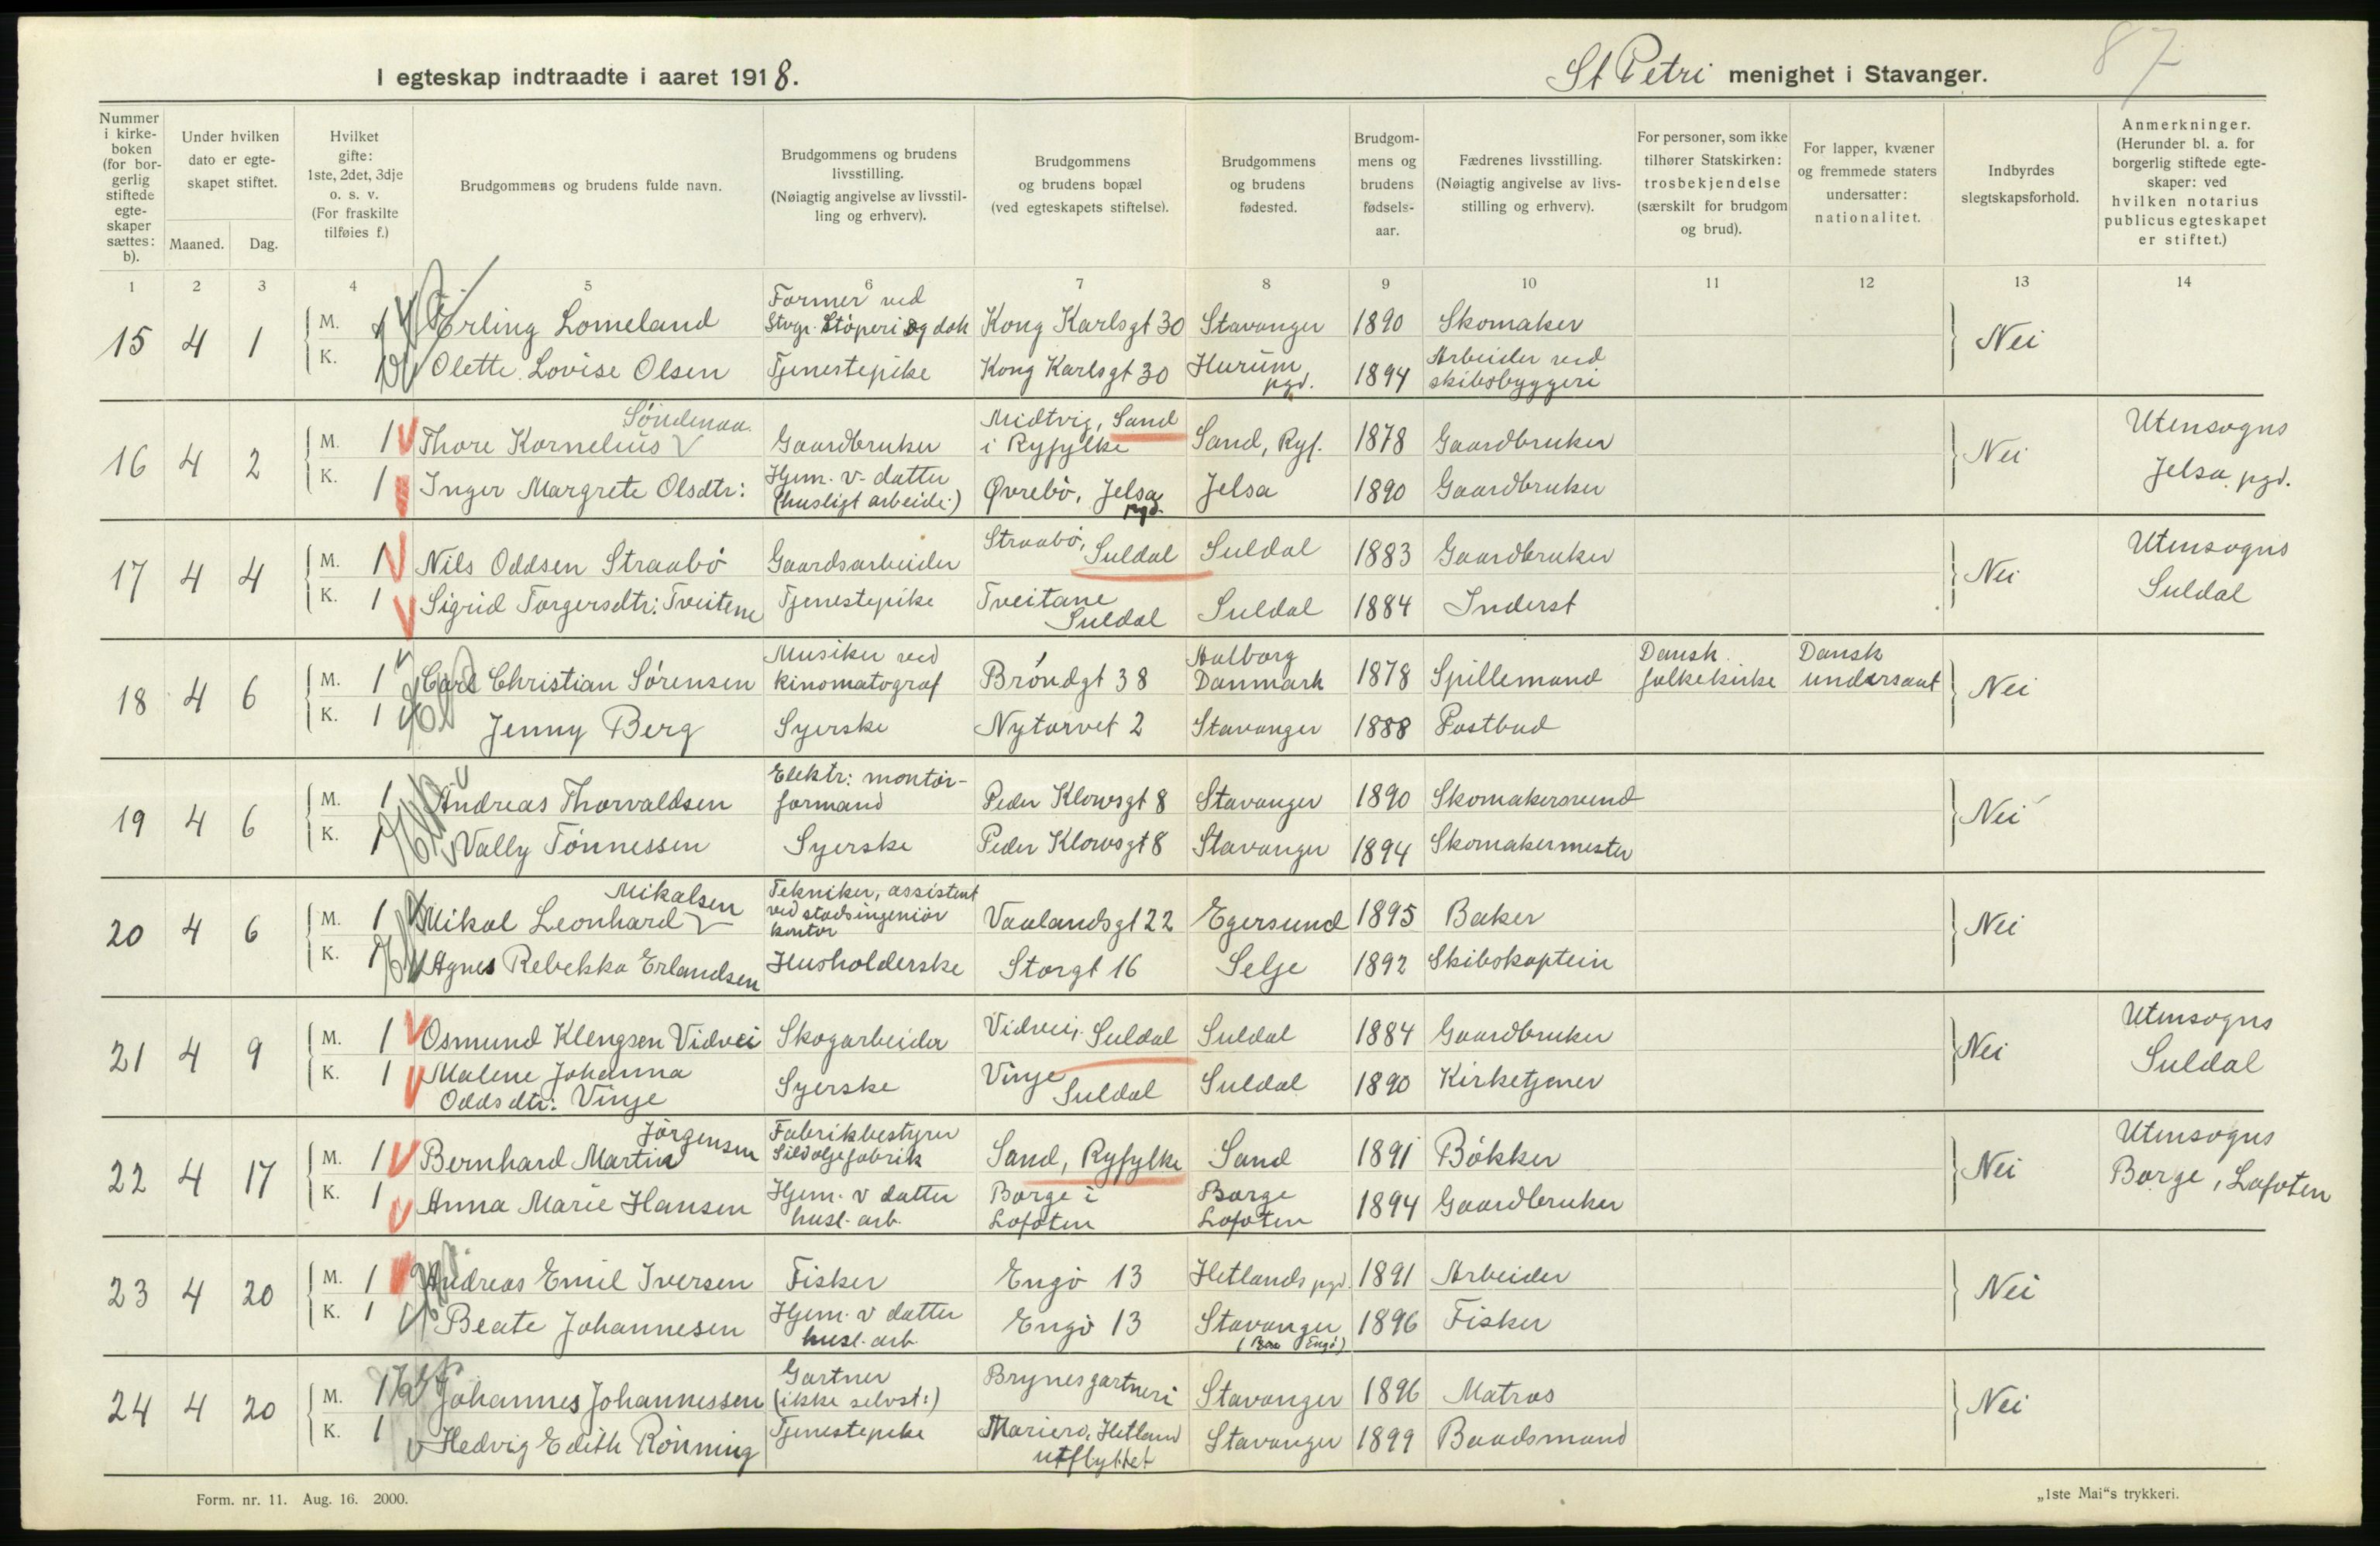 87
I egteskap indtraadte i aaret 1918.
St Petri menighet i Stavanger.
Nummer i kirkeboken (for borgerlig stiftede egteskaper sættes: b).
Under hvilken dato er egteskapet stiftet.
Maaned. Dag.
Hvilket gifte: 1ste, 2det, 3dje o. s. v. (For fraskilte tilføies f.)
Brudgommens og brudens fulde navn.
Brudgommens og brudens livsstilling. (Nøiagtig angivelse av livsstilling og erhverv).
Brudgommens og brudens bopæl (ved egteskapets stiftelse).
Brudgommens og brudens fødested.
Brudgommens og brudens fødselsaar.
Fædrenes livsstilling. (Nøiagtig angivelse av livsstilling og erhverv).
For personer, som ikke tilhører Statskirken: trosbekjendelse (særskilt for brudgom og brud).
For lapper, kvæner og fremmede staters undersatter: nationalitet.
Indbyrdes slegtskapsforhold.
Anmerkninger. (Herunder bl. a. for borgerlig stiftede egteskaper: ved hvilken notarius publicus egteskapet er stiftet.)
1 2 3 4 5 6 7 8 9 10 11 12 13 14
15 4 1 M. 1 Erling Lomeland Former ved Stvgr. Støperi og dok Kong Karlsgt 30 Stavanger 1890 Skomaker Nei
K. 1 Olette Lovise Olsen Tjenestepike Kong Karlsgt 30 Hurum pgd. 1894 Arbeider ved skibsbyggeri
16 4 2 M. 1 Thore Kornelius Søndenaa Gaardbruker Midtvig, Sand i Ryfylke Sand, Ryf. 1878 Gaardbruker Nei Utensogns Jelsa pgd.
K. 1 Inger Margrete Olsdtr: Hjem. v. datter (husligt arbeide) Øvrebø, Jelsa pgd. Jelsa 1890 Gaardbruker
17 4 4 M. 1 Nils Oddsen Straabø Gaardsarbeider Straabø, Suldal Suldal 1883 Gaardbruker Nei Utensogns Suldal
K. 1 Sigrid Torgersdtr: Tveitene Tjenestepike Tveitane Suldal Suldal 1884 Inderst
18 4 6 M. 1 Carl Christian Sørensen Musiker ved kinomatograf Brøndgt 38 Aalborg Danmark 1878 Spillemand Dansk folkekirke Dansk undersaat Nei
K. 1 Jenny Berg Syerske Nytorvet 2 Stavanger 1888 Postbud
19 4 6 M. 1 Andreas Thorvaldsen Elektr: montør-formand Peder Klowsgt 8 Stavanger 1890 Skomakersvend Nei
K. 1 Vally Tønnessen Syerske Peder Klowsgt 8 Stavanger 1894 Skomakermester
20 4 6 M. 1 Mikal Leonhard Mikalsen Tekniker, assistent ved stadsingeniør kontor Vaalandsgt 22 Egersund 1895 Baker Nei
K. 1 Agnes Rebekka Erlandsen Husholderske Storgt 16 Selje 1892 Skibskaptein
21 4 9 M. 1 Osmund Klengsen Vidvei Skogarbeider Vidvei, Suldal Suldal 1884 Gaardbruker Nei Utensogns Suldal
K. 1 Malene Johanna Oddsdtr: Vinje Syerske Vinje Suldal Suldal 1890 Kirketjener
22 4 17 M. 1 Bernhard Martin Jørgensen Fabrikbestyrer Sildoljefabrik Sand, Ryfylke Sand 1891 Bøkker Nei Utensogns Borge, Lofoten
K. 1 Anna Marie Hansen Hjem. v datter husl. arb. Borge i Lofoten Borge Lofoten 1894 Gaardbruker
23 4 20 M. 1 Andreas Emil Iversen Fisker Engø 13 Hetlands pgd. 1891 Arbeider Nei
K. 1 Beate Johannesen Hjem. v datter husl. arb. Engø 13 Stavanger 1896 Fisker
24 4 20 M. 1 Johannes Johannessen Gartner (ikke selvst:) Brynes gartneri Stavanger 1896 Matros Nei
K. 1 Hedvig Edith Rønning Tjenestepike Mariero, Hetland utflyttet Stavanger 1899 Baadsmand
Form. nr. 11. Aug. 16. 2000.
„1ste Mai“s trykkeri.